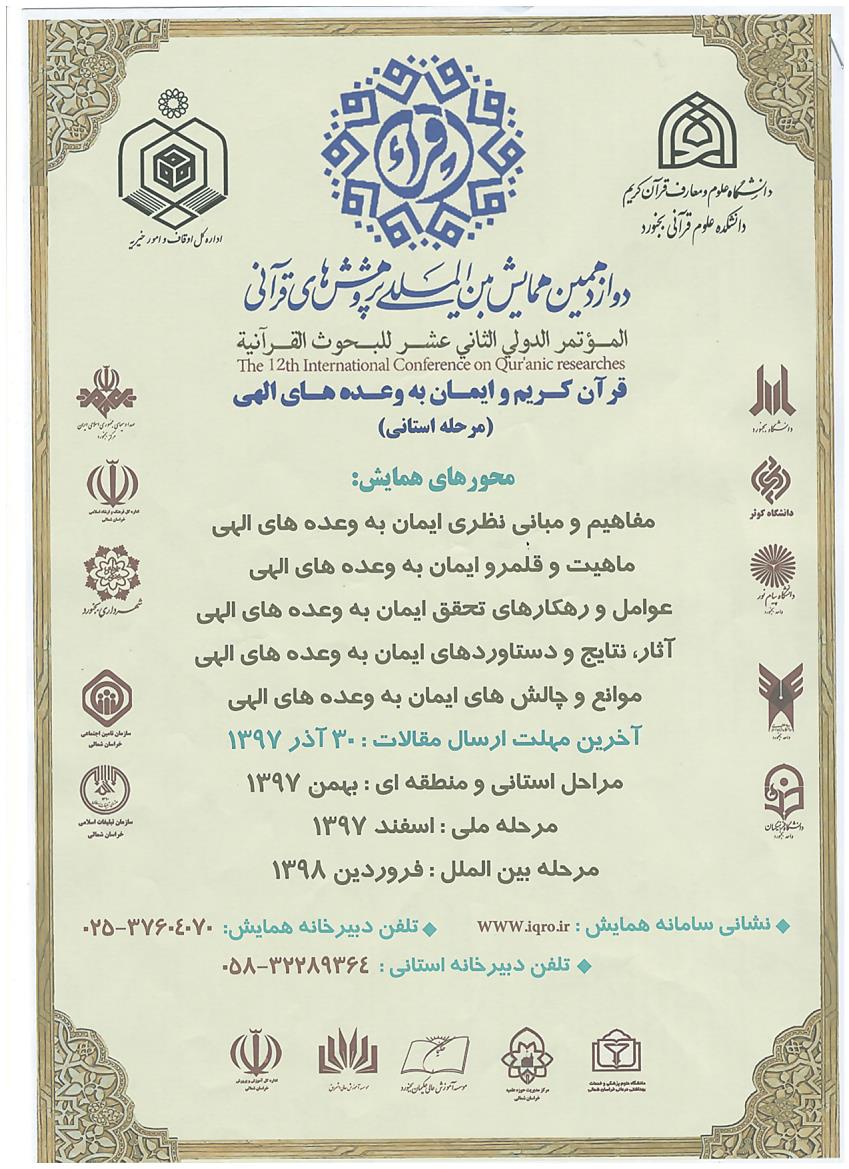 اقراء
دانشگاه علوم و معارف قرآن کریم
دانشکده علوم قرآنی بجنورد
اداره کل اوقاف و امور خیریه
دوازدهمین همایش بین المللی پژوهش های قرآنی
المؤتمر الدولي الثاني عشر للبحوث القرآنية
The 12th International Conference on Qur'anic researches
قرآن کریم و ایمان به وعده های الهی
(مرحله استانی)
محورهای همایش:
مفاهیم و مبانی نظری ایمان به وعده های الهی
ماهیت و قلمرو ایمان به وعده های الهی
عوامل و رهکارهای تحقق ایمان به وعده های الهی
آثار، نتایج و دستاوردهای ایمان به وعده های الهی
موانع و چالش های ایمان به وعده های الهی
آخرین مهلت ارسال مقالات : ۳۰ آذر ۱۳۹۷
مراحل استانی و منطقه ای : بهمن ۱۳۹۷
مرحله ملی : اسفند ۱۳۹۷
مرحله بین الملل : فروردین ۱۳۹۸
نشانی سامانه همایش : www.iqro.ir
تلفن دبیرخانه همایش: ۰۲۵-۳۷۶۰۴۰۷۰
تلفن دبیرخانه استانی : ۰۵۸-۳۲۲۸۹۳۶۴
دانشگاه بجنورد
دانشگاه کوثر
دانشگاه پیام نور
واحد بجنورد
واحد بجنورد
دانشگاه فرهنگیان
واحد بجنورد
صدا و سیمای جمهوری اسلامی ایران
مرکز بجنورد
اداره کل فرهنگ و ارشاد اسلامی
خراسان شمالی
شهرداری بجنورد
سازمان تامین اجتماعی
خراسان شمالی
سازمان تبلیغات اسلامی
خراسان شمالی
دانشگاه علوم پزشکی و خدمات
بهداشتی، درمانی خراسان شمالی
مرکز مدیریت حوزه علمیه
خراسان شمالی
موسسه آموزش عالی حکیمان بجنورد
موسسه آموزش عالی اشراق
اداره کل آموزش و پرورش
خراسان شمالی